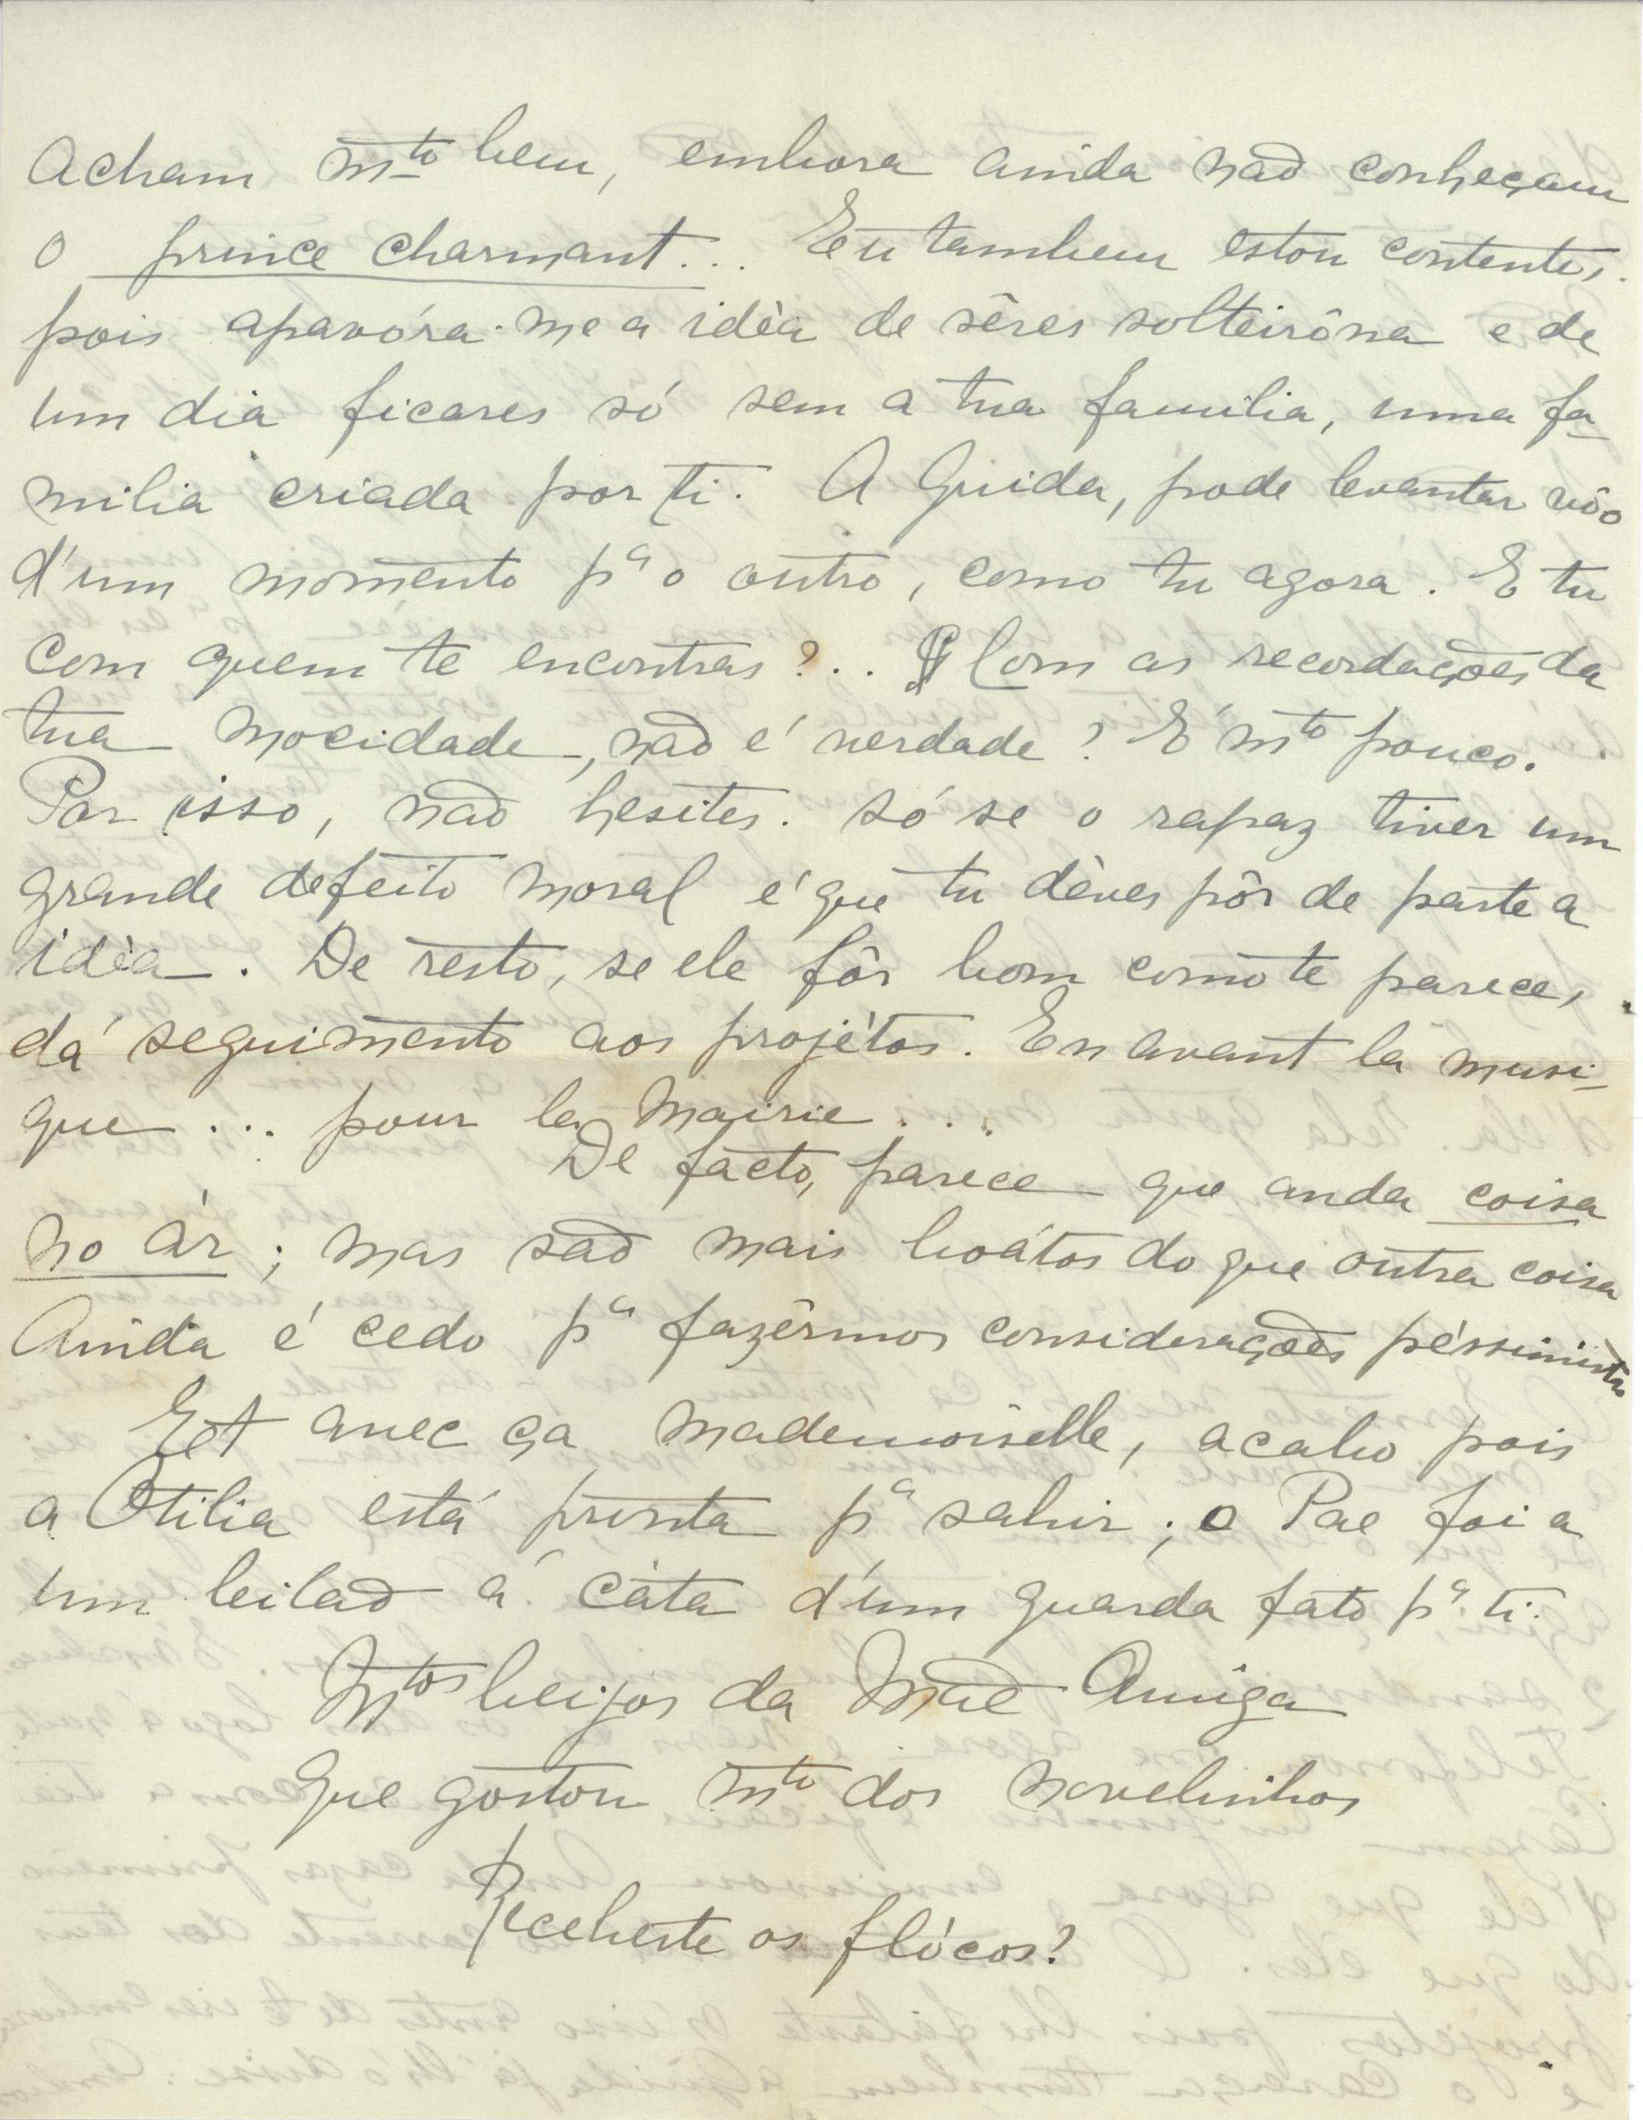 Acham mto bem, embora ainda não conheçam
o prince charmant... Eu tambem estou contente,
pois apavóra-me a idèa de sêres solteirôna e de
um dia ficares só sem a tua familia, uma fa-
milia criada por ti. A Guida, pode levantar vôo
d'um momento pa o outro, como tu agora. E tu
com quem te encontras?... Com as recordações da
tua mocidade, não é verdade? É mto pouco.
Por isso, não hesites. Só se o rapaz tiver um
grande defeito moral é que tu dèves pôr de parte a
idèa. De resto, se ele fôr bom como te parece,
dá seguimento aos projètos. En avant la musi-
que... pour la Mairie...
De facto, parece que anda coisa
no ár; mas são mais boátos do que outra coisa
Ainda é cedo pa fazêrmos considerações péssimistas
Et avec ça Mademoiselle, acabo pois
a Otilia está pronta pa sahir; o Pae foi a
um leilão á cáta d'um guarda fato pa ti.
Mtos beijos da Mãe Amiga
que gostou mto dos novelinhos
Recebeste os flócos?